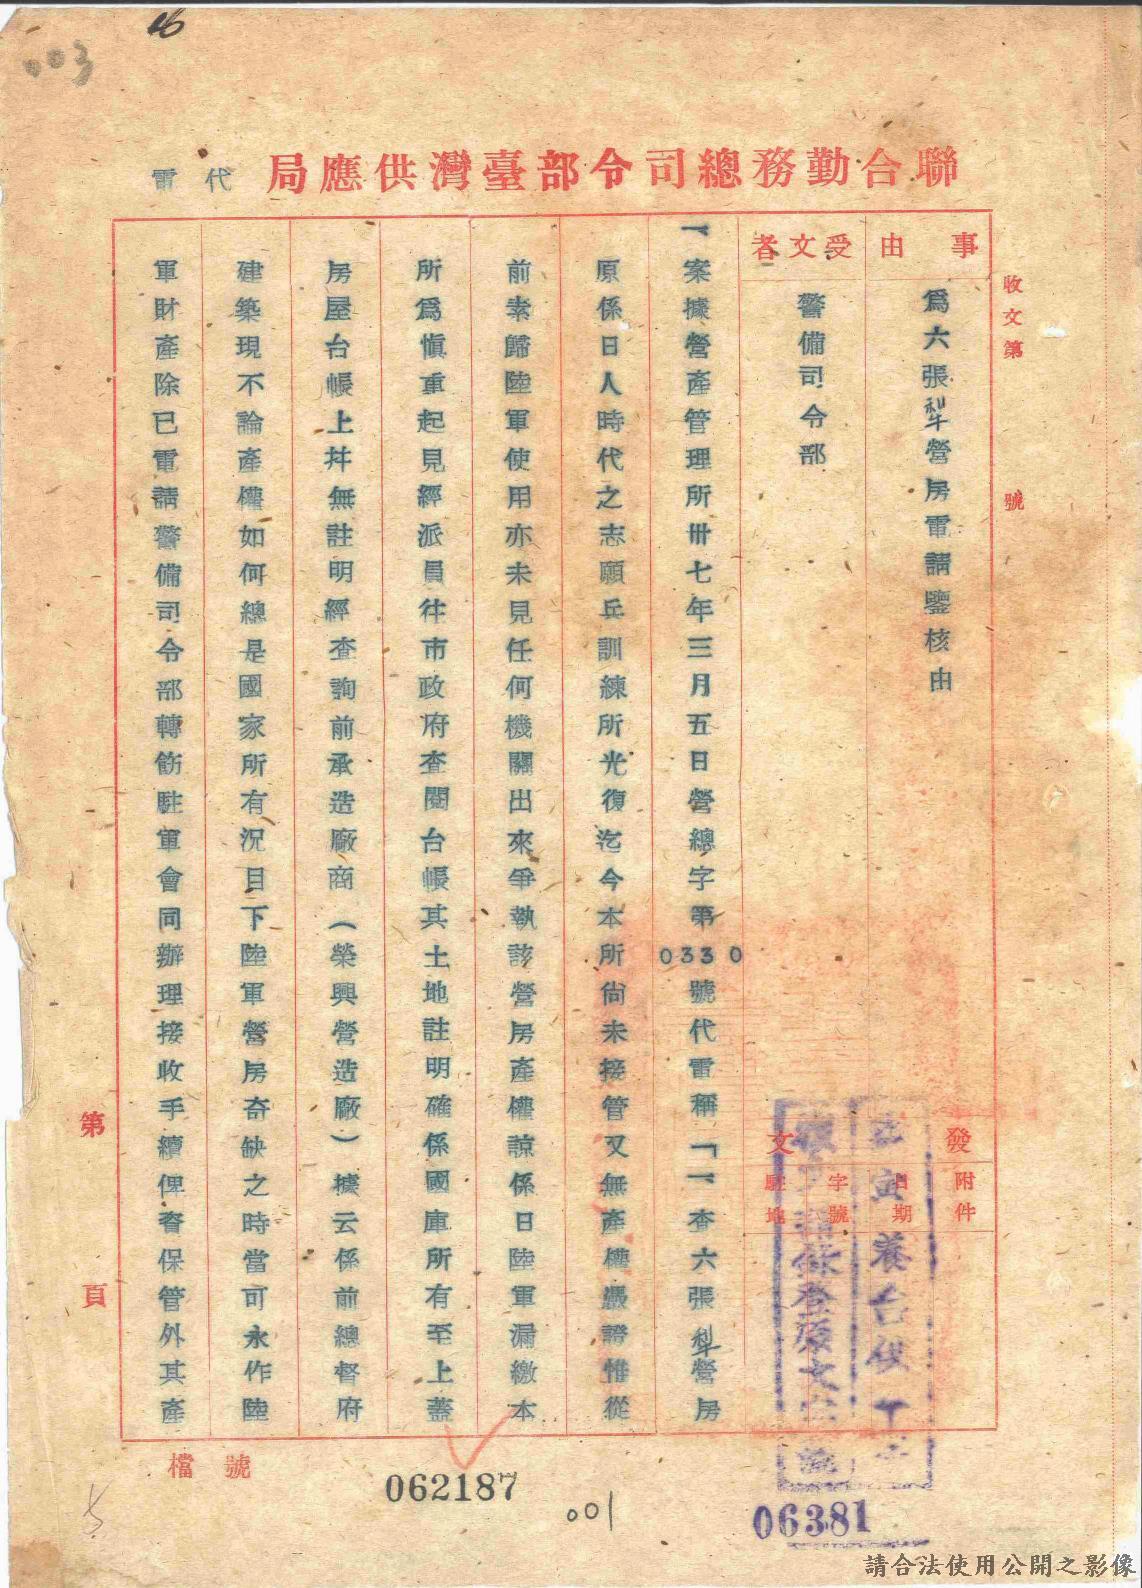 003
聯合勤務總司令部臺灣供應局 代電
收文第 號
事由
為六張犁營房電請鑒核由
受文者
警備司令部
發文
附件
日期
字號
駐地
一案據營產管理所卅七年三月五日營總字第0330號代電稱「一查六張犁營房
原係日人時代之志願兵訓練所光復迄今本所尙未接管又無產權憑證惟從
前素歸陸軍使用亦未見任何機關出來爭執該營房產權諒係日陸軍漏繳本
所為愼重起見經派員往市政府查閱台帳其土地註明確係國庫所有至上蓋
房屋台帳上幷無註明經查詢前承造廠商（榮興營造廠）據云係前總督府
建築現不論產權如何總是國家所有況目下陸軍營房奇缺之時當可永作陸
軍財產除已電請警備司令部轉飭駐軍會同辦理接收手續俾資保管外其產
第 頁
檔號
062187
001
06381
請合法使用公開之影像